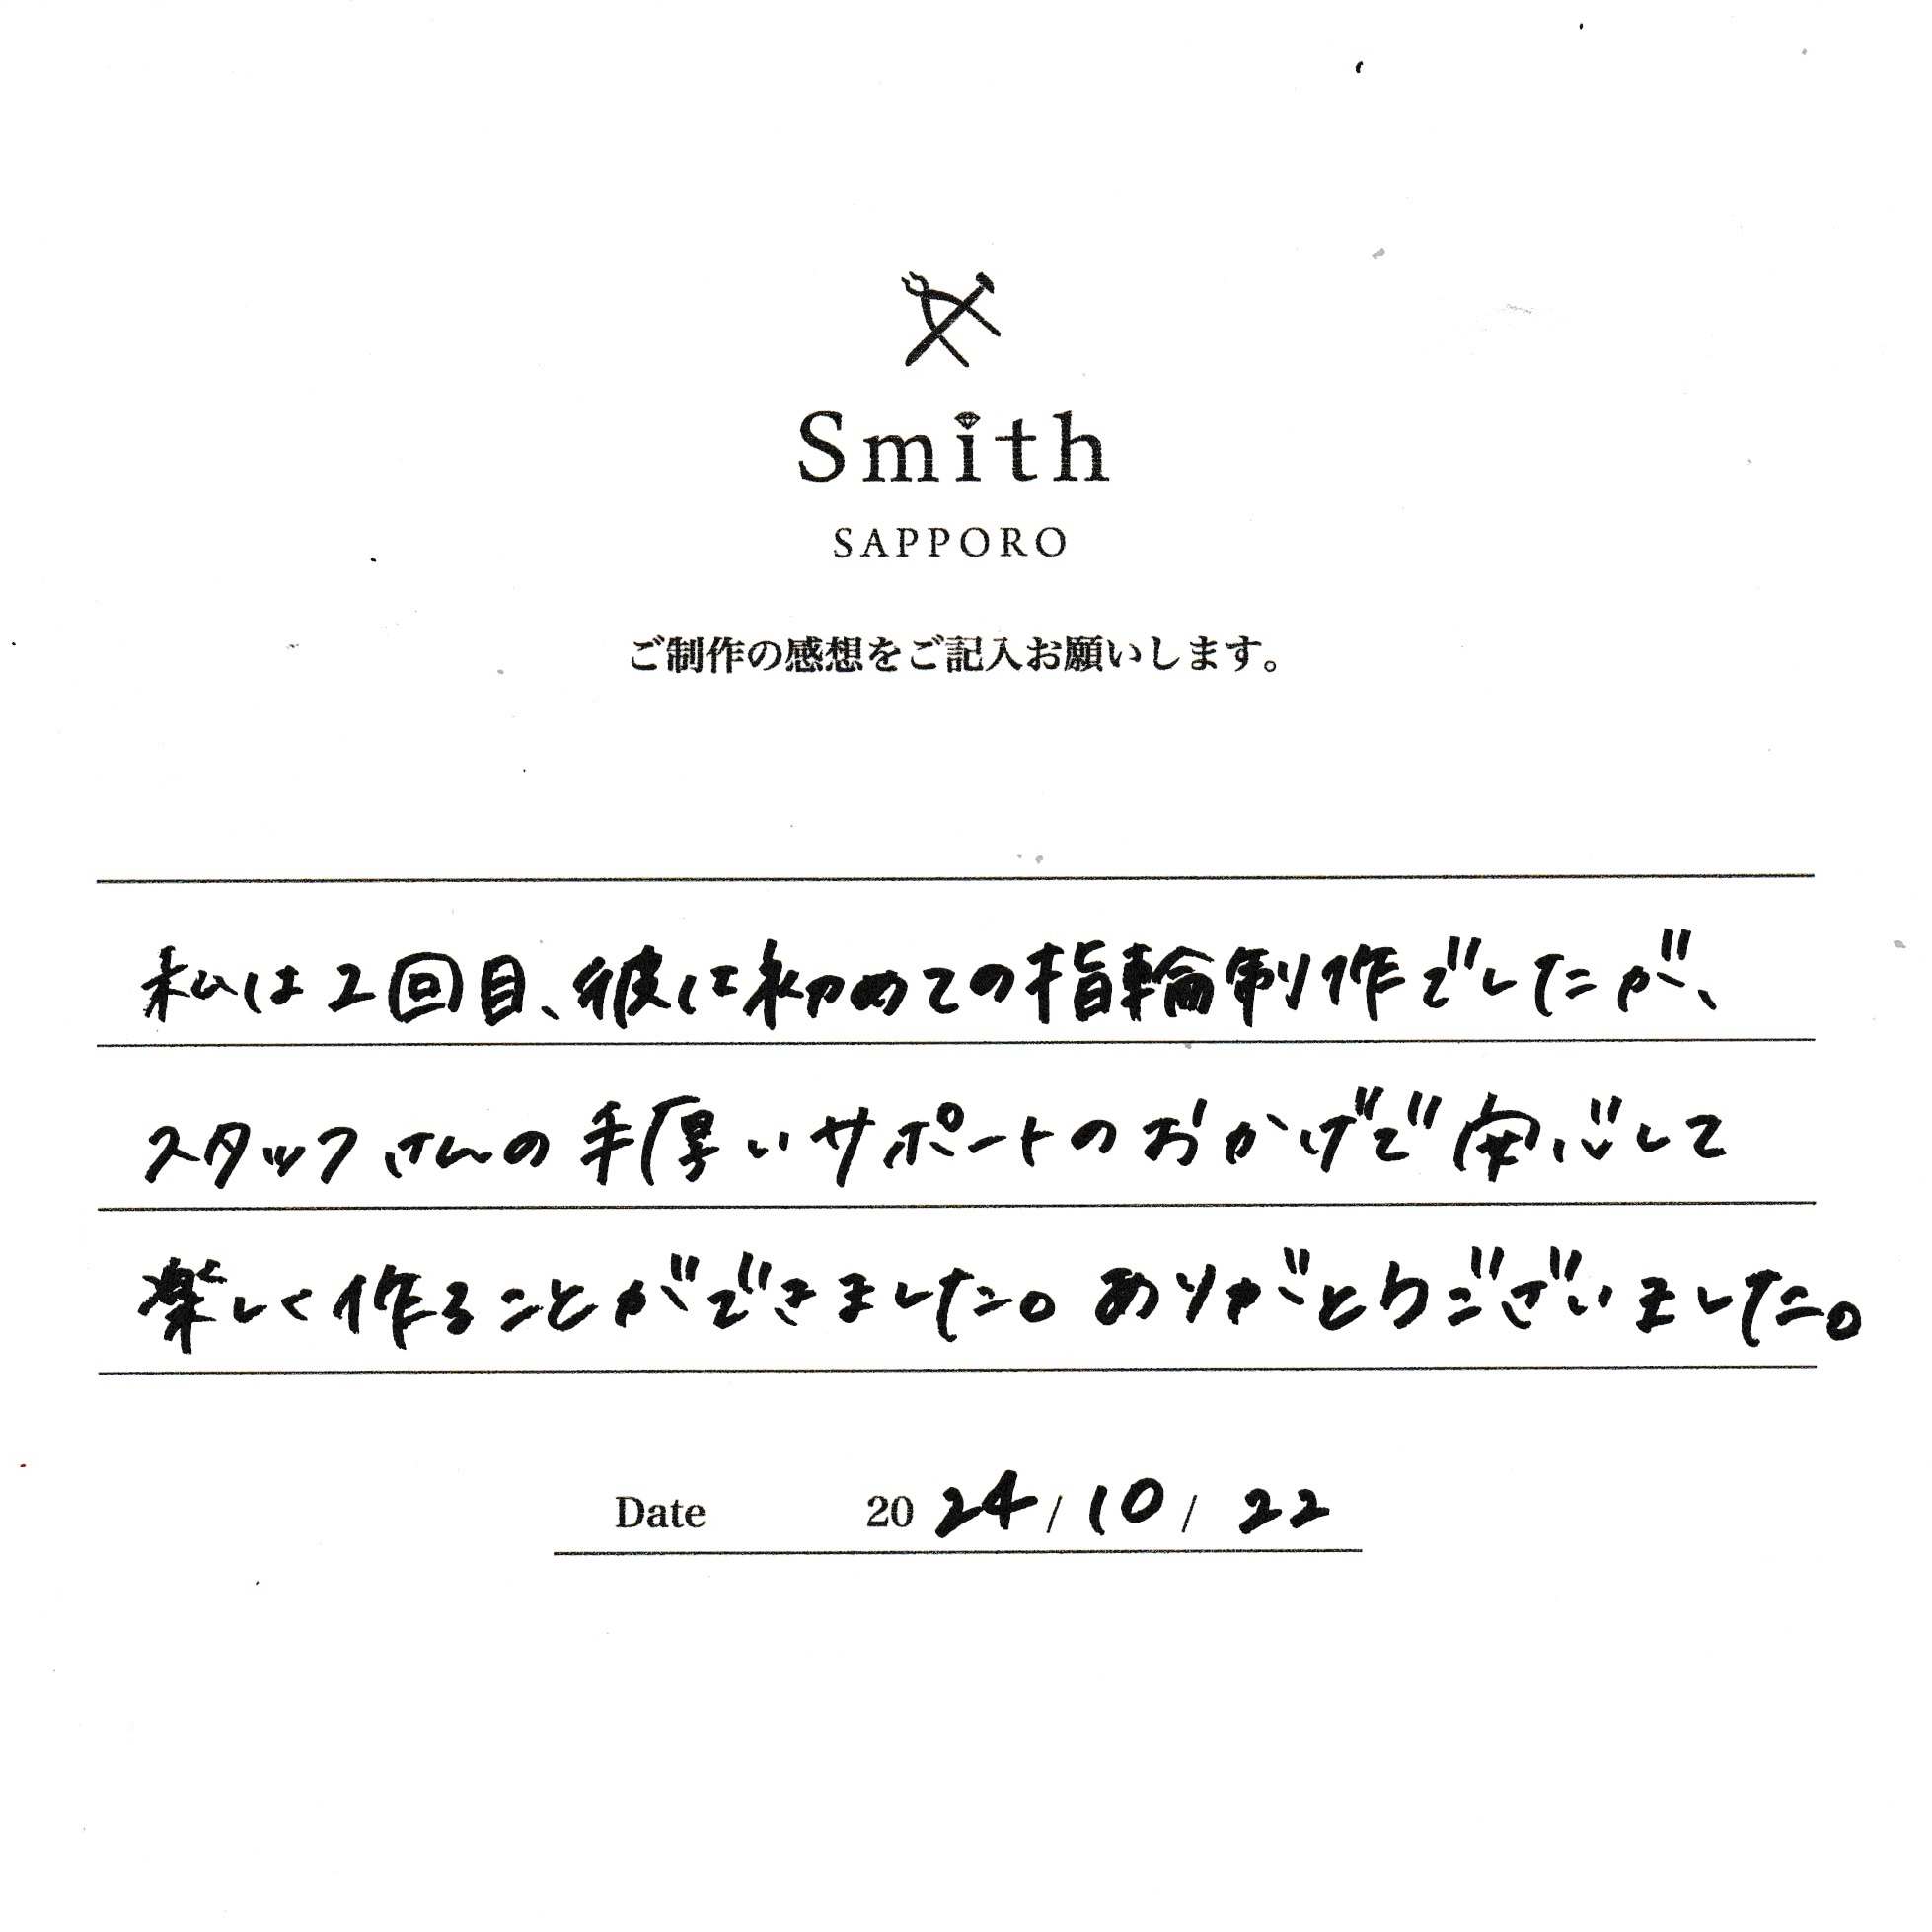 Smith
SAPPORO
ご制作の感想をご記入お願いします。
私は2回目、彼は初めての指輪制作でしたが、
スタッフさんの手厚いサポートのおかげで安心して
楽しく作ることができました。ありがとうございました。
Date 2024/10/22